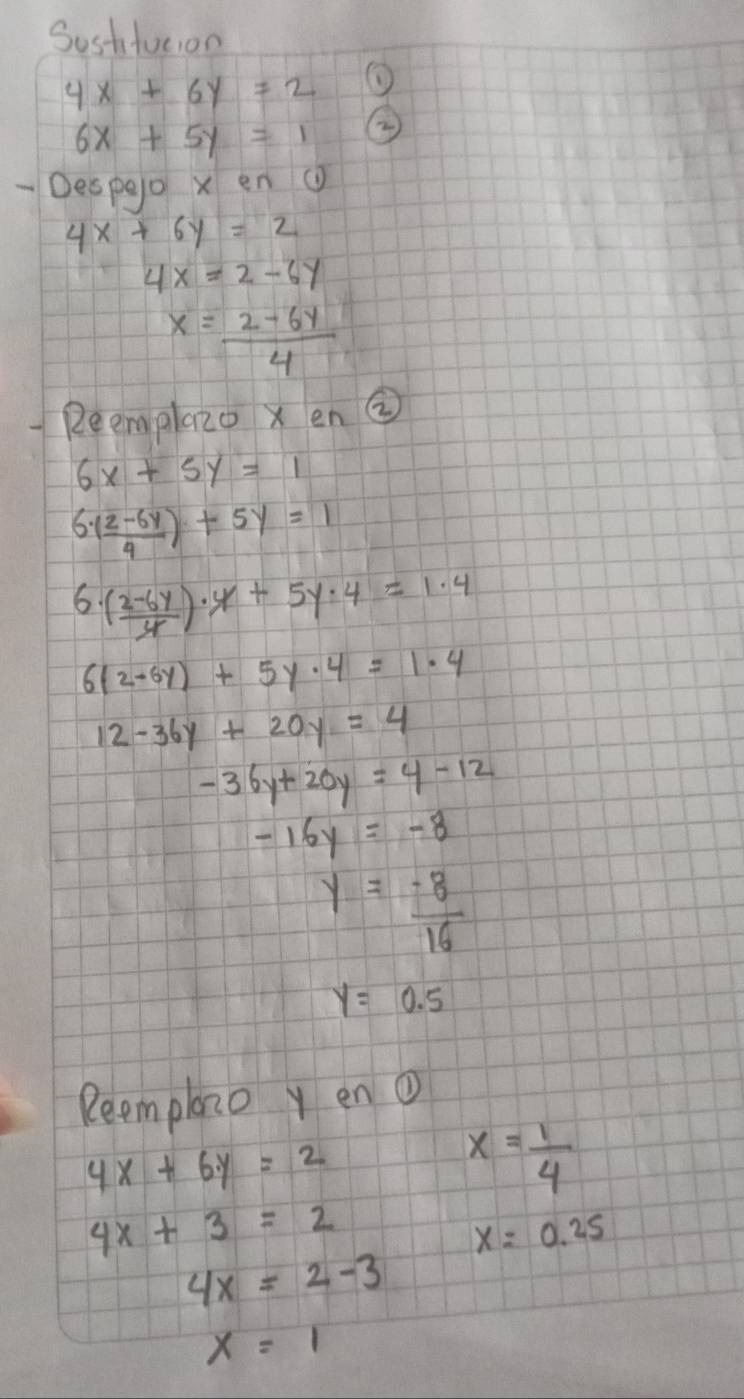 Sustitucion
4x + 6y = 2 ①
6x + 5y = 1 ②
- Despejo x en ①
4x + 6y = 2
4x = 2 - 6y
x = \frac{2 - 6y}{4}
- Reemplazo x en ②
6x + 5y = 1
6·(\frac{2-6y}{4}) + 5y = 1
6·(\frac{2-6y}{4})·4 + 5y·4 = 1·4
6(2-6y) + 5y·4 = 1·4
12-36y + 20y = 4
-36y+20y = 4-12
-16y = -8
y = \frac{-8}{16}
y = 0.5
Reemplazo y en ①
4x + 6y = 2
4x + 3 = 2
4x = 2-3
x = 1
x = \frac{1}{4}
x = 0.25